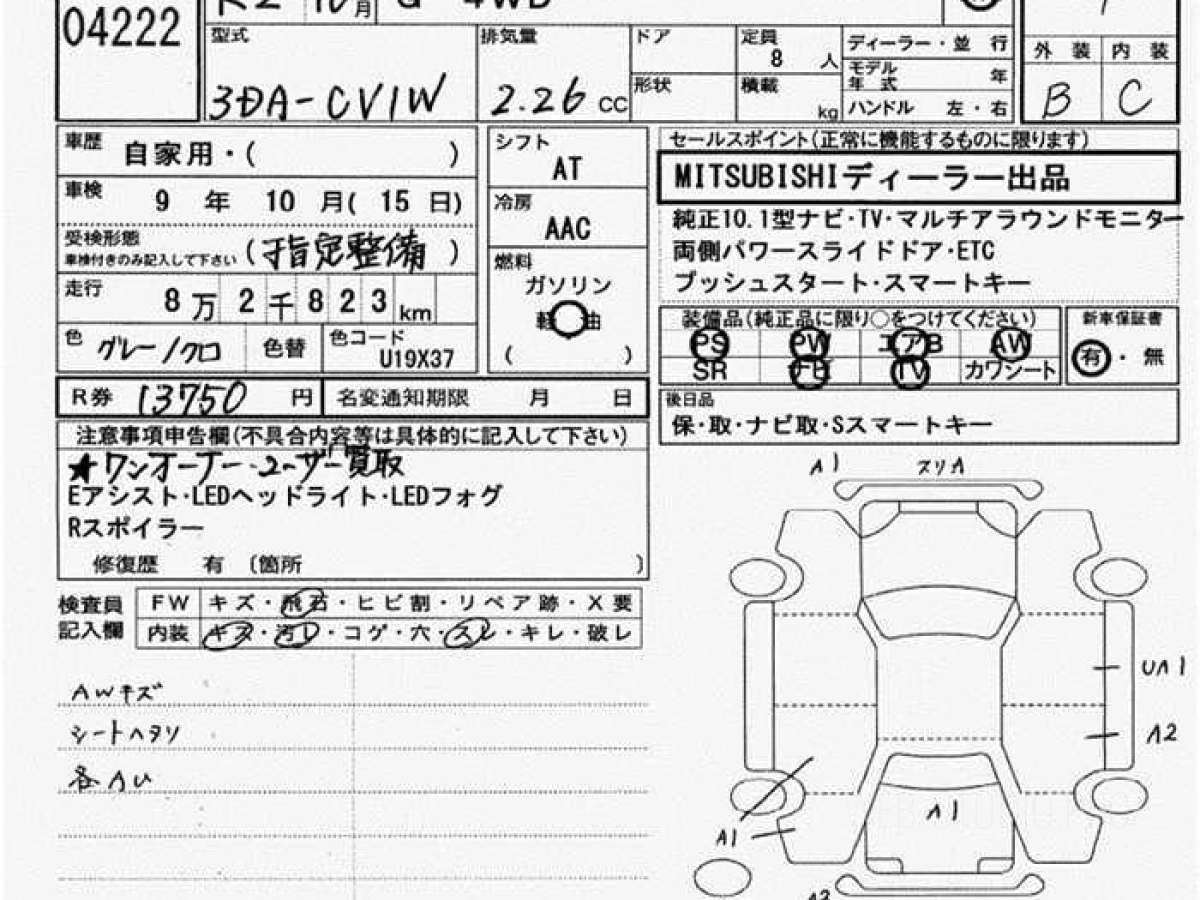 04222
R2 10月 G 4WD
型式 3DA-CV1W
排気量 2.26 CC
ドア
形状
定員 8 人
積載 kg
ディーラー・並 行
モデル年式 年
ハンドル 左・右
外 装 内 装
B C
車歴 自家用・( )
車検 9 年 10 月( 15 日)
受検形態
車検付きのみ記入して下さい (指定整備)
走行 8万2千823km
色 グレー/クロ 色替 色コード U19X37
R券 13750 円 名変通知期限 月 日
シフト
AT
冷房
AAC
燃料
ガソリン
軽 油
( )
セールスポイント(正常に機能するものに限ります)
MITSUBISHIディーラー出品
純正10.1型ナビ・TV・マルチアラウンドモニター
両側パワースライドドア・ETC
プッシュスタート・スマートキー
装備品(純正品に限り○をつけてください)
PS PW エアB AW
SR ナビ TV カワシート
新車保証書
有・無
後日品
保・取・ナビ取・Sスマートキー
注意事項申告欄(不具合内容等は具体的に記入して下さい)
★ワンオーナー・ユーザー買取
Eアシスト・LEDヘッドライト・LEDフォグ
Rスポイラー
修復歴 有 〔箇所 〕
検査員記入欄
FW キズ・飛石・ヒビ割・リペア跡・X要
内装 キズ・汚レ・コゲ・穴・スレ・キレ・破レ
AWキズ
シートヘタリ
各AU
A1 スリA
UA1
A2
A1
A1
A3